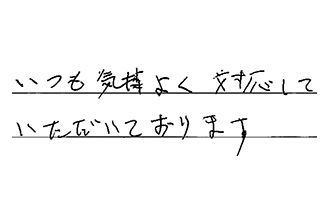 いつも気持よく対応して
いただいております